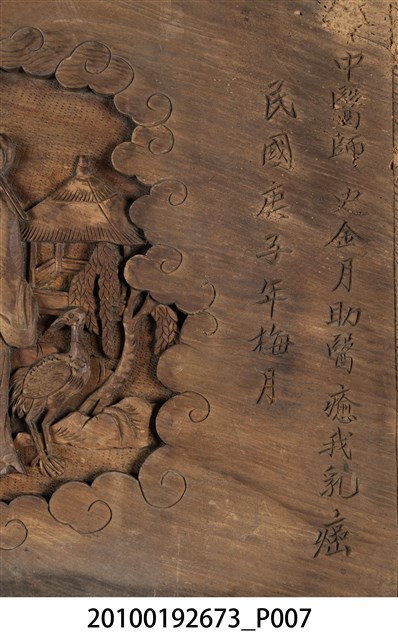 中醫師 史金月助醫癒我乳癌
民國庚子年梅月
20100192673_P007